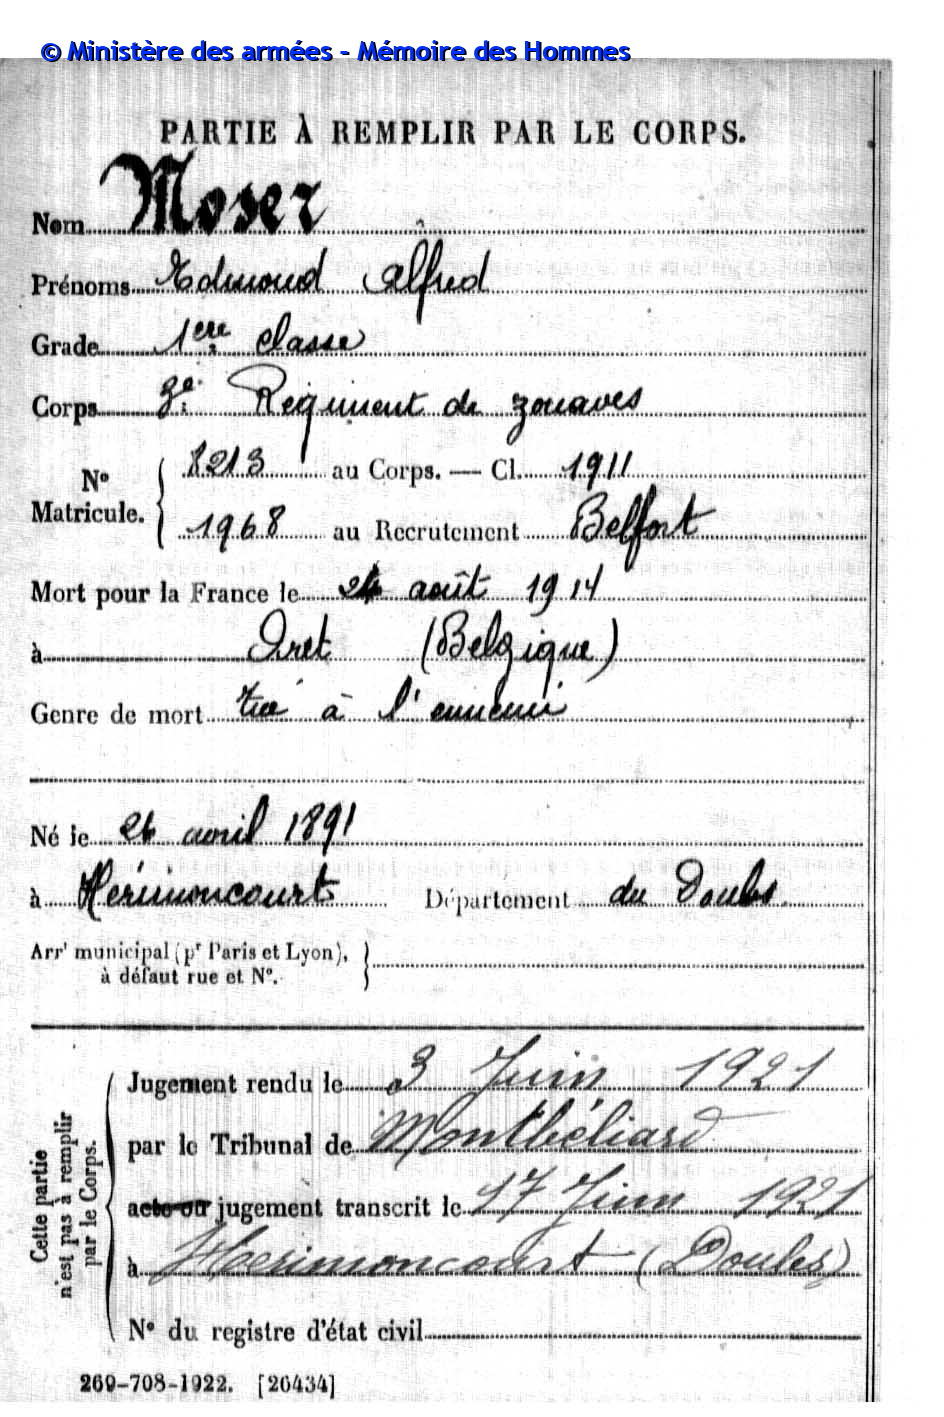 © Ministère des armées - Mémoire des Hommes
PARTIE À REMPLIR PAR LE CORPS.
Nom Moser
Prénoms Edmond Alfred
Grade 1ère classe
Corps 3e Régiment de zouaves
N° Matricule. 8213 au Corps. — Cl. 1911
1968 au Recrutement Belfort
Mort pour la France le août 1914
à Oret (Belgique)
Genre de mort tué à l'ennemi
Né le avril 1891
à Hérimoncourt Département du Doubs
Arrt municipal (pr Paris et Lyon),
à défaut rue et N°.
Cette partie n'est pas à remplir par le Corps.
Jugement rendu le 3 Juin 1921
par le Tribunal de Montbéliard
acte ou jugement transcrit le 17 Juin 1921
à Hérimoncourt (Doubs)
N° du registre d'état civil
269-708-1922. [26434]